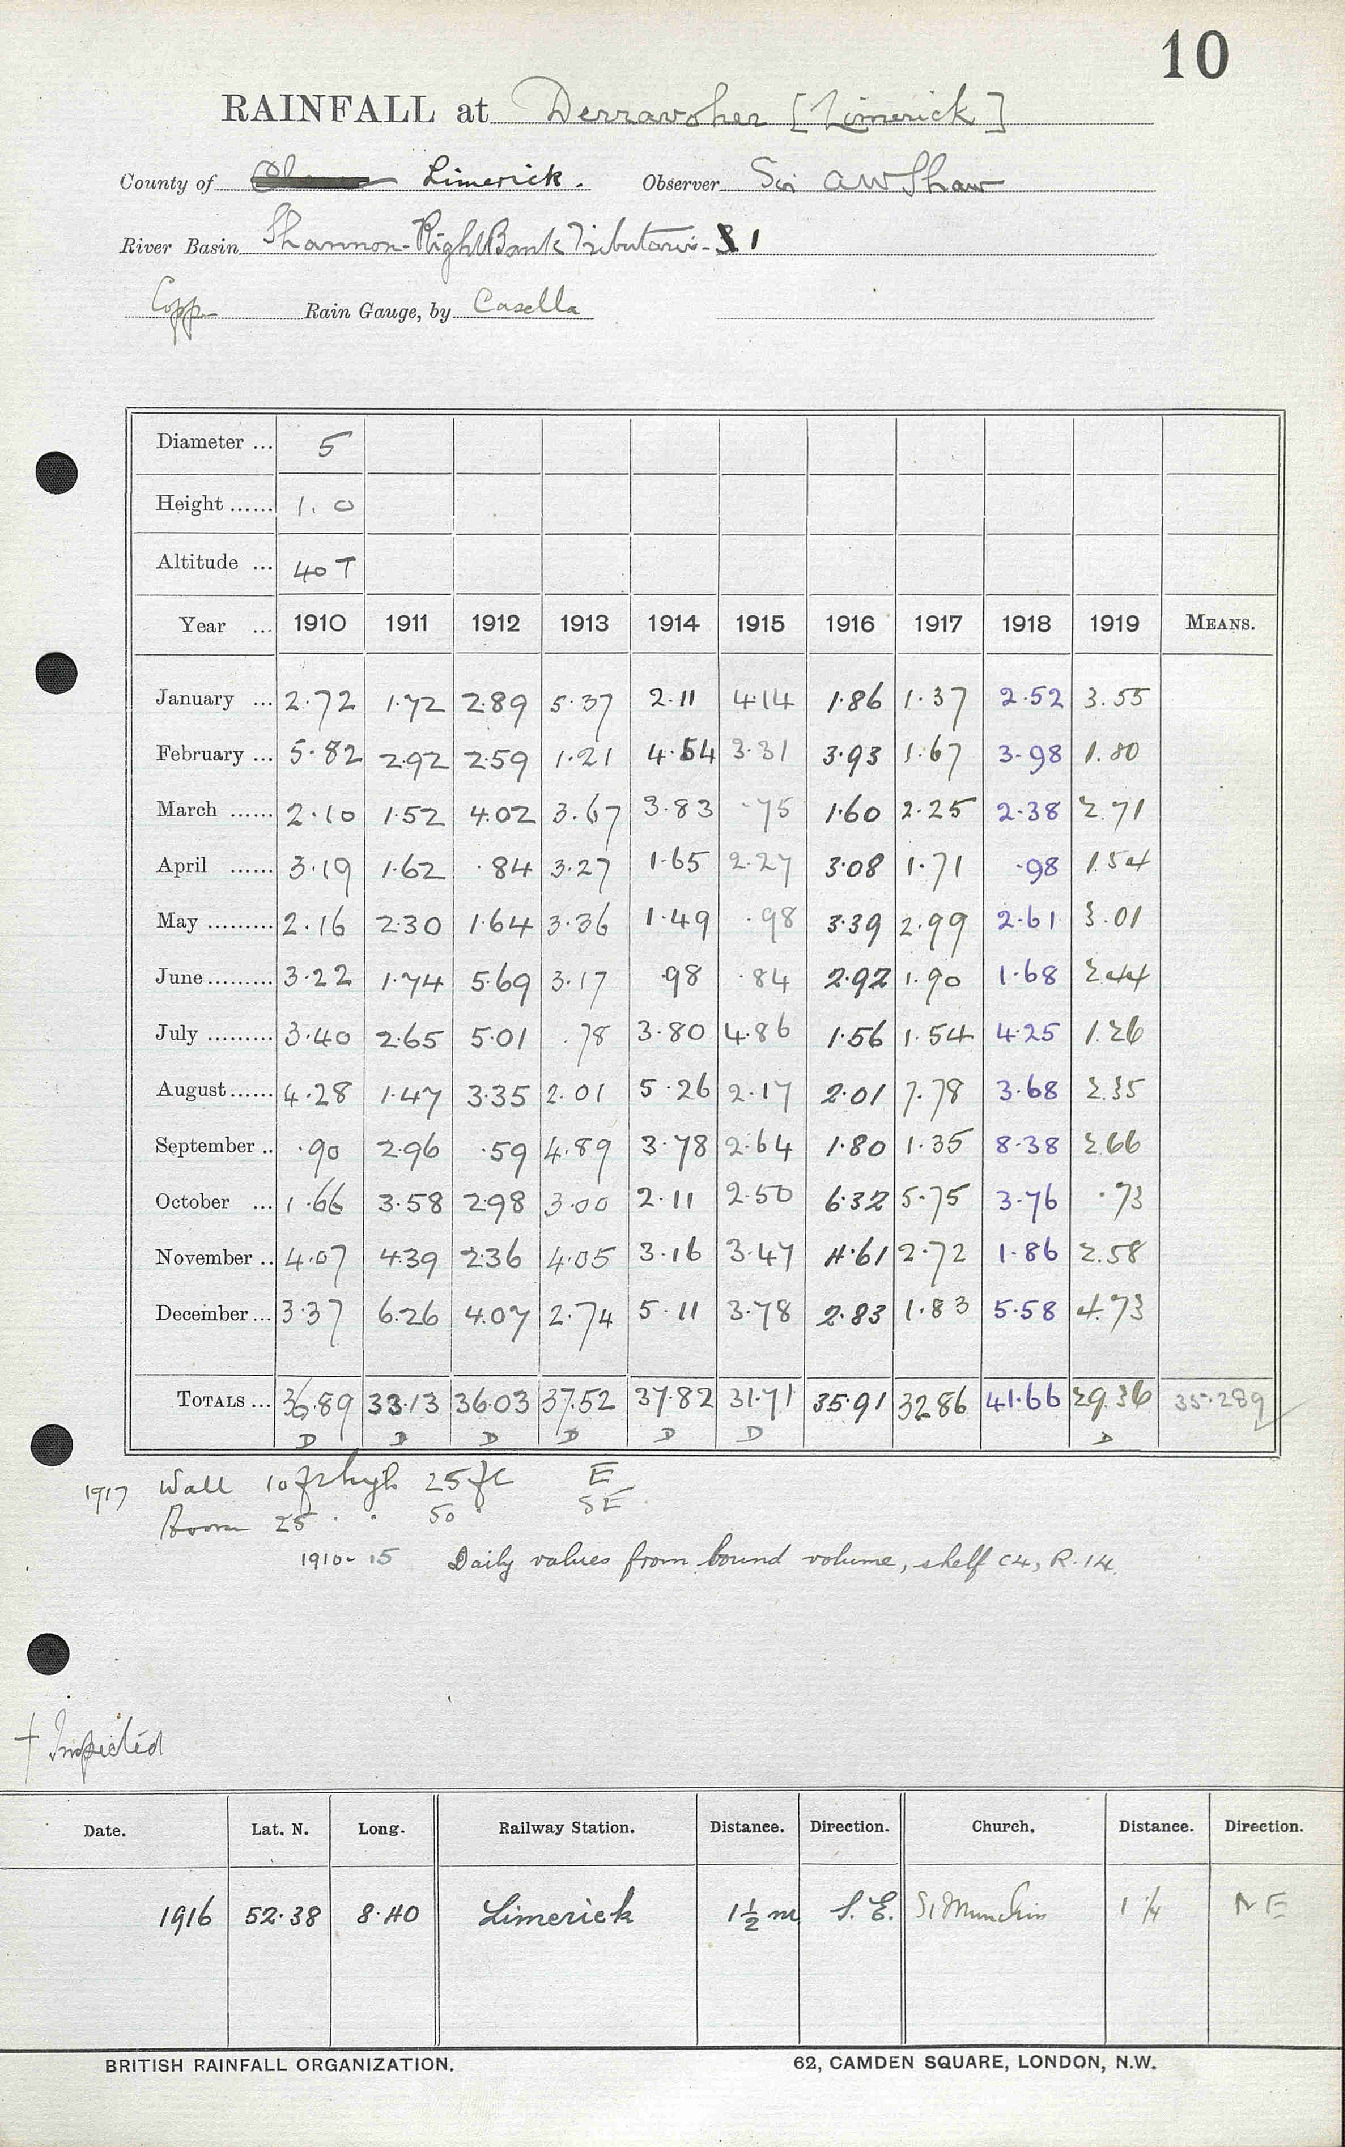 10
RAINFALL at Derravoher [Limerick]
County of Limerick. Observer Sir AW Shaw
River Basin Shannon-Right Bank Tributaries- 1
Copp. Rain Gauge, by Casella
Diameter ... 5
Height ...... 1.0
Altitude ... 40 T
Year ... 1910 1911 1912 1913 1914 1915 1916 1917 1918 1919 MEANS.
January ... 2.72 1.72 2.89 5.37 2.11 4.14 1.86 1.37 2.52 3.55
February ... 5.82 2.92 2.59 1.21 4.54 3.31 3.93 1.67 3.98 1.80
March ...... 2.10 1.52 4.02 3.67 3.83 .75 1.60 2.25 2.38 2.71
April ...... 3.19 1.62 .84 3.27 1.65 2.27 3.08 1.71 .98 1.54
May ......... 2.16 2.30 1.64 3.36 1.49 .98 3.39 2.99 2.61 3.01
June ......... 3.22 1.74 5.69 3.17 .98 .84 2.92 1.90 1.68 2.44
July ......... 3.40 2.65 5.01 .78 3.80 4.86 1.56 1.54 4.25 1.26
August ...... 4.28 1.47 3.35 2.01 5.26 2.17 2.01 7.78 3.68 2.35
September .. .90 2.96 .59 4.89 3.78 2.64 1.80 1.35 8.38 2.66
October ... 1.66 3.58 2.98 3.00 2.11 2.50 6.32 5.75 3.76 .73
November .. 4.07 4.39 2.36 4.05 3.16 3.47 4.61 2.72 1.86 2.58
December ... 3.37 6.26 4.07 2.74 5.11 3.78 2.83 1.83 5.58 4.73
TOTALS ... 36.89 33.13 36.03 37.52 37.82 31.71 35.91 32.86 41.66 29.36 35.289
D D D D D D D
1917 Wall 10 ft high 25 ft E
25 " " 50 " SE
1910-15 Daily values from bound volume, shelf C4, R.14.
† Inspected
Date. Lat. N. Long. Railway Station. Distance. Direction. Church. Distance. Direction.
1916 52.38 8.40 Limerick 1½ m S.E. St Munchin 1¼ NE
BRITISH RAINFALL ORGANIZATION. 62, CAMDEN SQUARE, LONDON, N.W.